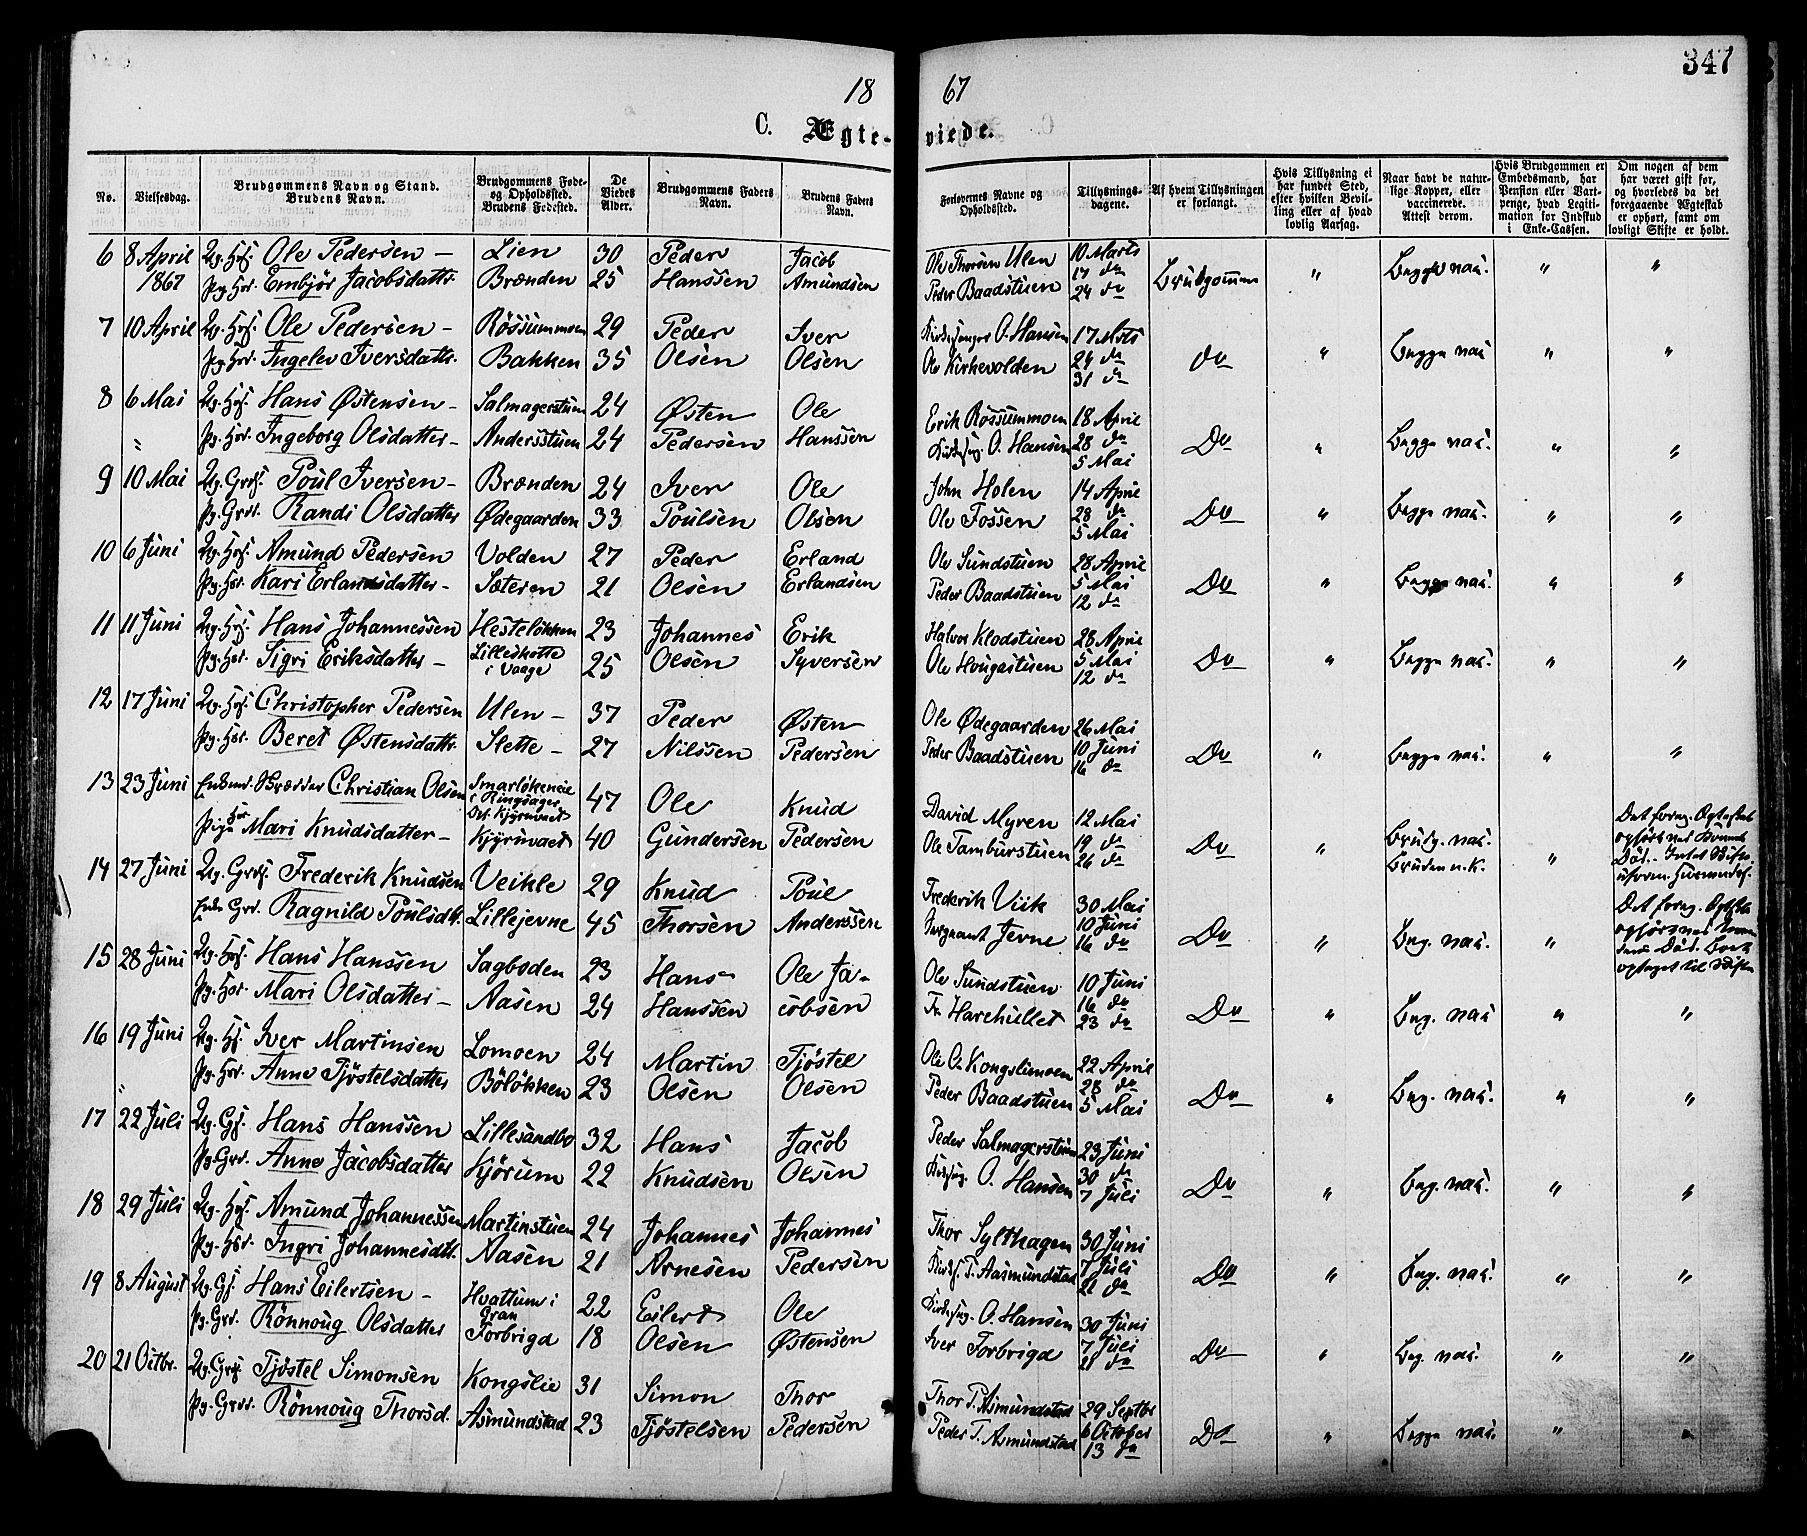 347
18 67
C. Ægteviede.
No. Vielsesdag. Brudgommens Navn og Stand. Brudens Navn. Brudgommens Føde- og Opholdssted. Brudens Fødested. De Viedes Alder. Brudgommens Faders Navn. Brudens Faders Navn. Forlovernes Navne og Opholdssted. Tillysningsdagene. Af hvem Tillysningen er forlangt. Hvis Tillysning ei har fundet Sted, efter hvilken Bevilling eller af hvad lovlig Aarsag. Naar havt de naturlige Kopper, eller vaccinerede. Attest derom. Hvis Brudgommen er Embedsmand, har Pension eller Vartpenge, hvad Legitimation for Indskud i Enke-Cassen. Om nogen af dem har været gift før, og hvorledes da det foregaaende Ægteskab er ophørt, samt om lovligt Skifte er holdt.
6 8 April Ug. Hsf. Ole Pedersen - Lien 30 Peder Jacob Ole Thorsen Ulen 10 Marts
1867 Pg. Hsr. Embjör Jacobsdattr. Brænden 25 Hanssen Amundsen Peder Baadstuen 17 do 24 do Brudgommen " Begge nat. " "
7 10 April Ug. Hsf. Ole Pedersen - Rössummoen 29 Peder Iver Kirkesanger O. Hansen 17 Mrts
Pg. Hsr. Ingelev Iversdattr. Bakken 35 Olsen Olsen Ole Kirkevolden 24 do 31 do do " Begge nat. " "
8 6 Mai Ug. Hsf. Hans Østensen - Salmagerstuen 24 Østen Ole Erik Rössummoen 18 April
" Pg. Hsr. Ingeborg Olsdatter - Andersstuen 24 Pedersen Hanssen Kirkesng. O. Hansen 28 do 5 Mai Do " Begge nat. " "
9 10 Mai Ug. Grdf. Poul Iversen - Brænden 24 Iver Ole John Holen 14 April
Pg. Grdr. Randi Olsdatter Ødegaarden 33 Poulsen Olsen Ole Fossen 28 do 5 Mai Do " Begge nat. " "
10 6 Juni Ug. Hsf. Amund Pedersen Volden 27 Peder Erland Ole Sundstuen 28 April
Pg. Hsr. Kari Erlandsdatter - Sæteren 21 Olsen Erlandsen Peder Baadstuen 5 Mai 12 do Do " Begge nat. " "
11 11 Juni Ug. Hsf. Hans Johannessen Hestelökken 23 Johannes Erik Halvor Klodstuen 28 April
Pg. Hsr. Sigri Eriksdatter - Lilleskotte i Vaage 25 Olsen Syversen Ole Hougastuen 5 Mai 12 do Do " Begge nat. " "
12 17 Juni Ug. Hsf. Christopher Pedersen Ulen - 37 Peder Østen Ole Ødegaarden 26 Mai
Pg. Hsr. Beret Østensdattr. Slette - 27 Nilssen Pedersen Peder Baadstuen 10 Juni 16 do Do " Begge nat. " "
13 23 Juni Enkemd. Christian Olsen Smarlökeneie i Ringsager Opf. Kjyruvaet 47 Ole Knud David Myren 12 Mai
Pige Hsr Mari Knudsdatter - Kjyruvaet 40 Gundersen Pedersen Ole Tamburstuen 19 do 26 do Do " Brudg. nat. Bruden n.k. " Det forrige Ægteskab ophørt ved Konens Død.
14 27 Juni Ug. Grdf. Frederik Knudsen Veikle 29 Knud Poul Frederik Viik 30 Mai
Enke Grd. Ragnild Poulsdtr. Lillejevne 45 Thorsen Anderssen Sergeant Jevne 10 Juni 16 do Do " Beg. nat. " Det forrig. Ægtesk. ophørt ved Død.
15 28 Juni Ug. Hsf. Hans Hanssen Sagboden 23 Hans Ole Ja- Ole Sundstuen 10 Juni
Pg. Hsr. Mari Olsdatter - Aasen 24 Hanssen cobsen Fr. Harehullet 16 do 23 do Do " Beg. nat. " "
16 19 Juni Ug. Hf. Iver Martinsen Lomoen 24 Martin Tjöstel Ole O. Kongslimoen 22 April
" Pg. Hsr. Anne Tjöstelsdatter Bölökken 23 Olsen Olsen Peder Baadstuen 28 do 5 Mai Do " Beg. nat. " "
17 22 Juli Ug. Gf. Hans Hanssen Lillesandbo 32 Hans Jacob Peder Salmagerstuen 23 Juni
Pg. Grdr. Anne Jacobsdatter Kjörum 22 Knudsen Olsen Kirkesng. O. Hansen 30 do 7 Juli Do " Beg. nat. " "
18 29 Juli Ug. Hsf. Amund Johannessen Martinstuen 24 Johannes Johannes Thor Sylthagen 30 Juni
Pg. Hsr. Ingri Johannesdtr. Aasen 21 Arnesen Pedersen Kirks. T. Aasmundstad 7 Juli 21 do Do " Beg. nat. " "
19 8 August Ug. Gf. Hans Eilertsen - Hvattum i Gran 22 Eilert Ole Kirkesng. O. Hansen 30 Juni
Pg. Grdr. Rönnoug Olsdatter Forbrigd 18 Olsen Østensen Iver Forbrigd 7 Juli 21 do Do " Beg. nat. " "
20 21 Octbr. Ug. Grdf. Tjöstel Simonsen Kongslie 31 Simon Thor Thor T. Asmundstad 29 Septbr
Pg. Grdr. Rönnoug Thorsd. Asmundstad 23 Tjöstelsen Pedersen Peder T. Asmundstad 6 October 13 do Do " Begge nat. " "